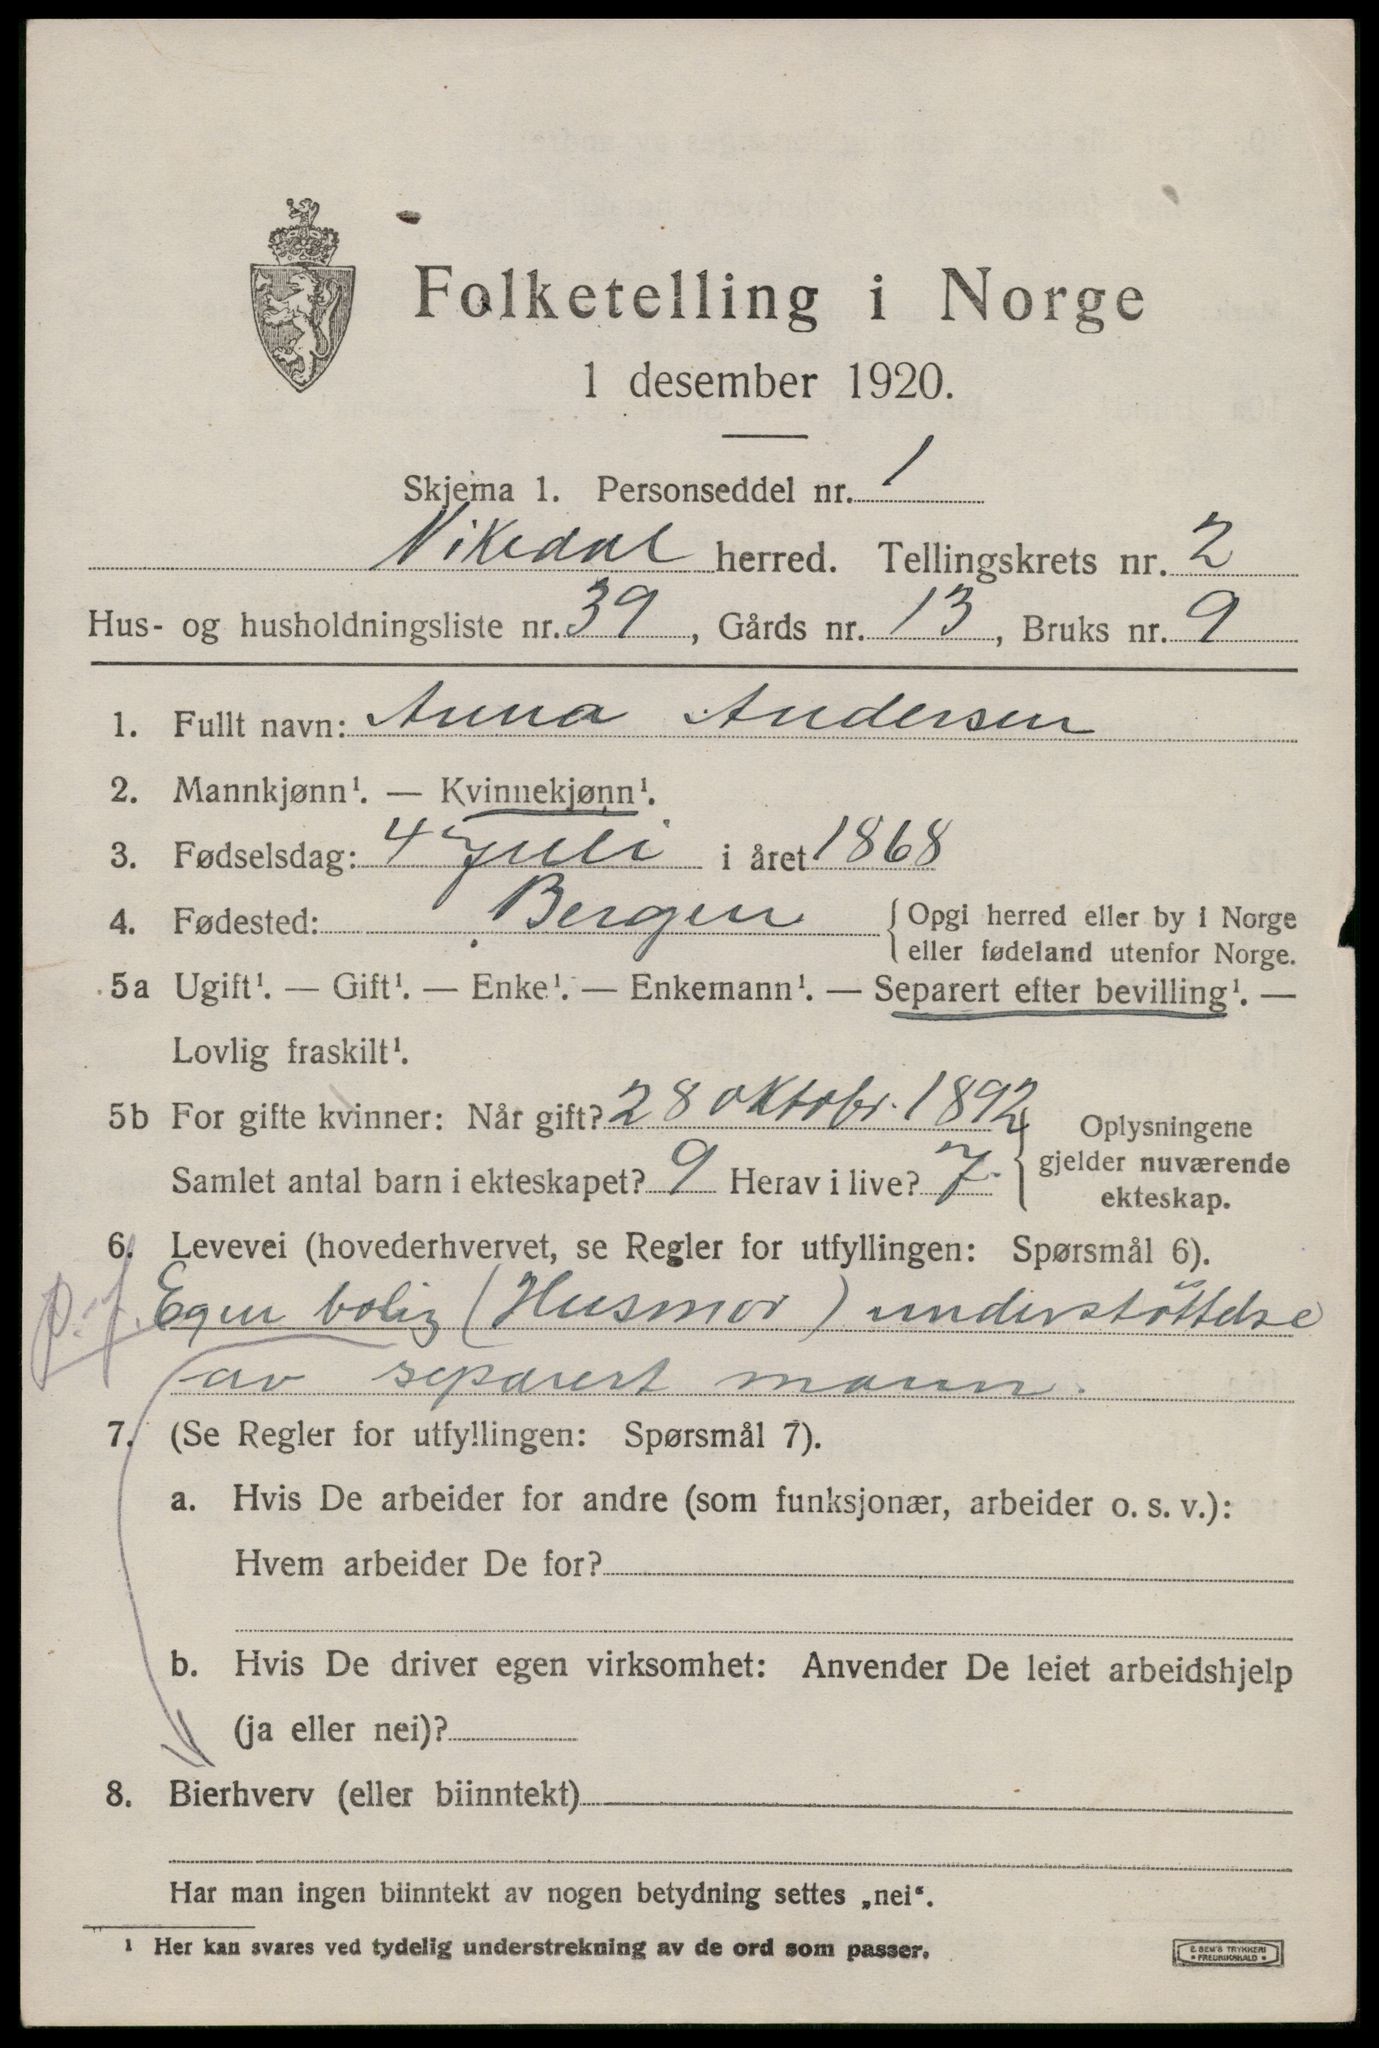 Folketelling i Norge
1 desember 1920.
Skjema 1. Personseddel nr. 1
Vikedal herred. Tellingskrets nr. 2
Hus- og husholdningsliste nr. 39, Gårds nr. 13, Bruks nr. 9
1. Fullt navn: Anna Andersen
2. Mannkjønn¹. — Kvinnekjønn¹.
3. Fødselsdag: 4 Juli i året 1868
4. Fødested: Bergen { Opgi herred eller by i Norge
eller fødeland utenfor Norge.
5a Ugift¹. — Gift¹. — Enke¹. — Enkemann¹. — Separert efter bevilling¹. —
Lovlig fraskilt¹.
5b For gifte kvinner: Når gift? 28 oktobr. 1892
Samlet antal barn i ekteskapet? 9 Herav i live? 7.
Oplysningene
gjelder nuværende
ekteskap.
6. Levevei (hovederhvervet, se Regler for utfyllingen: Spørsmål 6).
Egen bolig (Husmor) understöttelse
av separert mann.
7. (Se Regler for utfyllingen: Spørsmål 7).
a. Hvis De arbeider for andre (som funksjonær, arbeider o. s. v.):
Hvem arbeider De for?
b. Hvis De driver egen virksomhet: Anvender De leiet arbeidshjelp
(ja eller nei)?
8. Bierhverv (eller biinntekt)
Har man ingen biinntekt av nogen betydning settes „nei“.
¹ Her kan svares ved tydelig understrekning av de ord som passer.
E. SEM'S TRYKKERI
• FREDRIKSHALD •